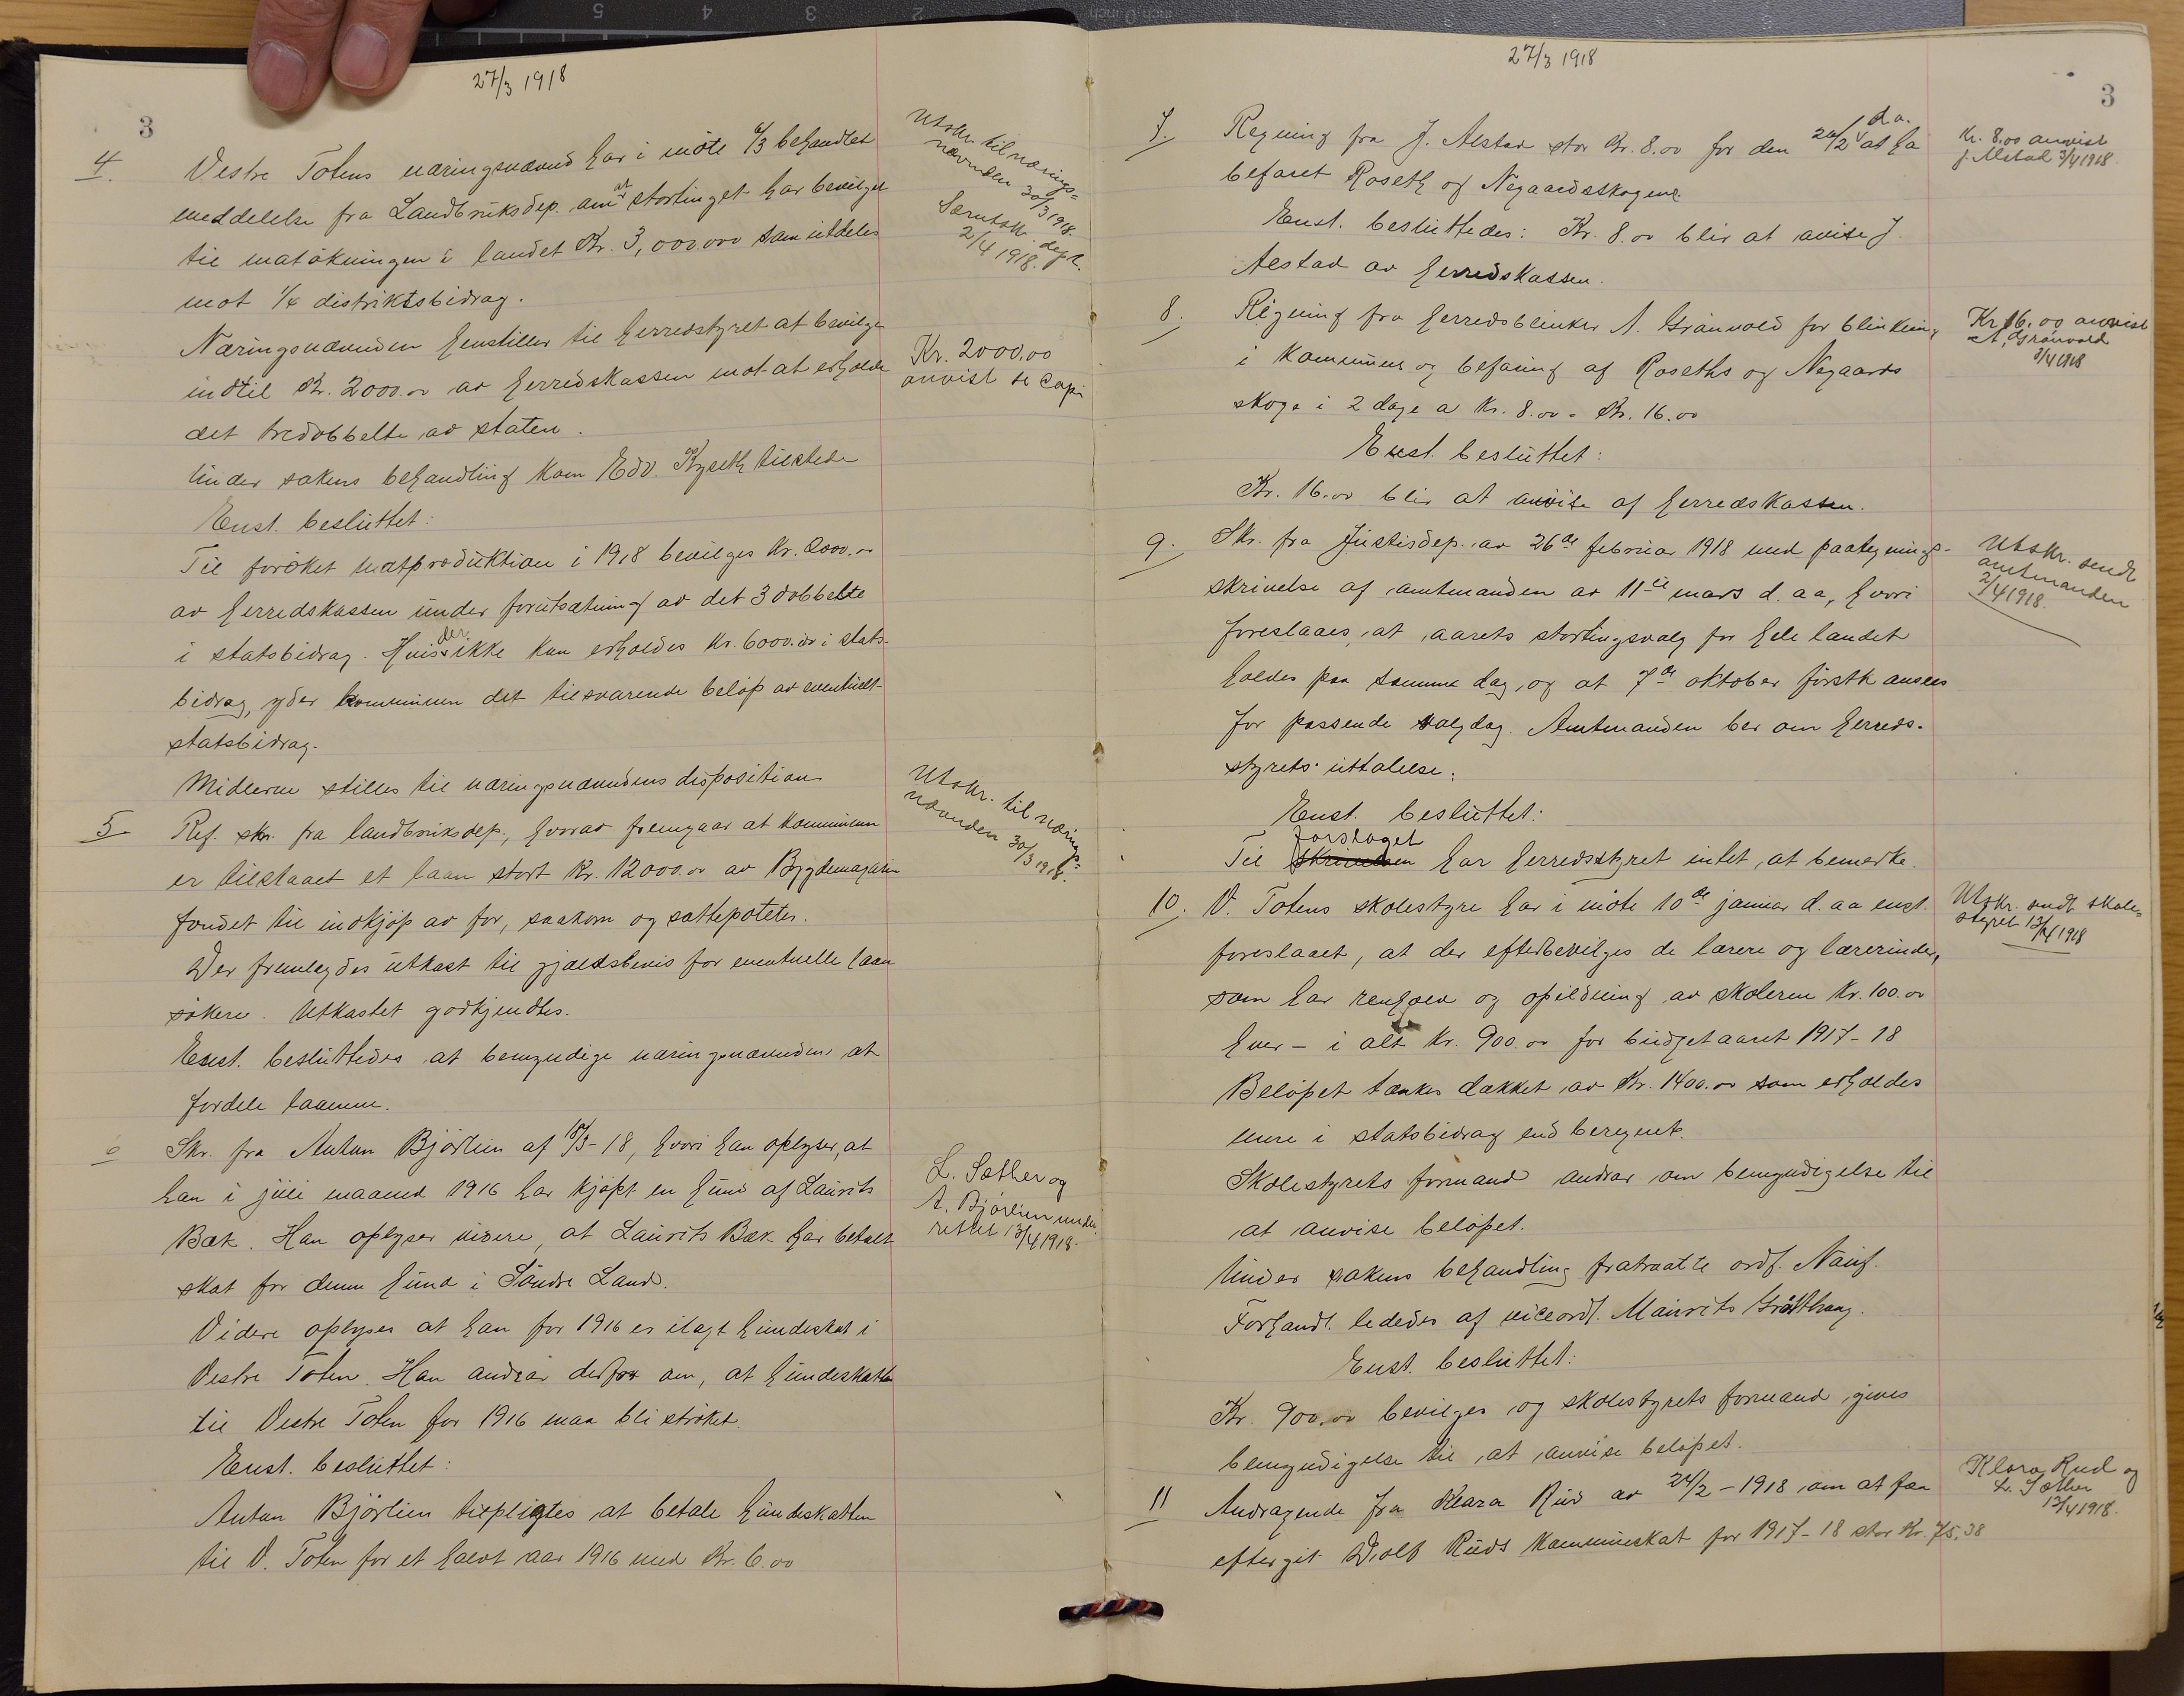 27/3 1918
3
4 Vestre Totens næringsnævnd har i møte 6/3 behandlet
meddelelse fra Landbruksdep. om at stortinget har bevilget
til matøkningen i landet Kr. 3,000000 som utdeles
mot 1/4 distriktsbidrag.
Næringsnævnden henstiller til herredstyret at bevilge
indtil Kr. 2000.00 av herredskassen mot at erholde
det tredobbelte av staten.
Under sakens behandling kom Edv. Kyseth tilstede
Enst. besluttet:
Til forøket matproduktion i 1918 bevilges Kr. 2000.00
av herredskassen under forutsætning av det 3 dobbelte
i statsbidrag. Hvis der ikke kan erholdes Kr. 6000.00 i stats-
bidrag, yder kommunen det tilsvarende beløp av eventuelt
statsbidrag.
Midlerne stilles til næringsnævndens disposition
Utskr. til nærings-
nævnden 30/3 1918.
Særutskr. dept.
2/4 1918.
Kr. 2000,00
anvist
5 Ref. skr. fra landbruksdep., hvorav fremgaar at kommunen
er tilstaaet et laan stort Kr. 12000.00 av Bygdemagasin
fondet til indkjøp av for, saakorn og sættepoteter.
Der fremlagdes utkast til gjældsbevis for eventuelle laan
søkere. Utkastet godkjendtes.
Enst. besluttedes at bemyndige næringsnævnden at
fordele laanene.
Utskr. til nærings-
nævnden 30/3 1918.
6 Skr. fra Anton Bjørlien af 18/3-18, hvori han oplyser, at
han i juli maaned 1916 har kjøpt en hund af Laurits
Bæk. Han oplyser videre, at Laurits Bæk har betalt
skat for denne hund i Søndre Land.
Videre oplyses at han for 1916 er ilagt hundeskat i
Vestre Toten. Han andrar derfor om, at hundeskatten
til Vestre Toten for 1916 maa bli strøket.
Enst. besluttet:
Anton Bjørlien tilpligtes at betale hundeskatten
til V. Toten for et halvt aar 1916 med Kr. 6.00
L. Sæther og
A. Bjørlien under-
rettet 13/4 1918.
27/3 1918
3
7. Regning fra J. Alstad stor Kr. 8.00 for den 26/2 d.a. at ha
befaret Roseth og Negaardsskogene.
Enst. besluttedes: Kr. 8.00 blir at anvise J.
Alstad av herredskassen.
Kr. 8.00 anvist
J. Alstad 3/4 1918.
8. Regning fra herredsblinker A. Grønvold for blinkning
i kommunen og befaring af Roseths og Negaards
skoge i 2 dage a Kr. 8.00 = Kr. 16.00
Enst. besluttet:
Kr. 16.00 blir at anvise af herredskassen.
Kr 16.00 anvist
A. Grønvold
3/4 1918
9. Skr. fra Justisdep. av 26de februar 1918 med paategnings-
skrivelse af amtmanden av 11te mars d. aa, hvori
foreslaaes, at aarets stortingsvalg for hele landet
holdes paa samme dag, og at 7de oktober førstk. ansees
for passende valgdag. Amtmanden ber om herreds-
styrets uttalelse.
Enst. besluttet:
Til skrivelsen forslaget har herredsstyret intet at bemerke.
Utskr. sendt
amtmanden
2/4 1918.
10. V. Totens skolestyre har i møte 10de januar d. aa enst.
foreslaaet, at der efterbevilges de lærere og lærerinder,
som har renhold og opildning av skolerne Kr. 100.00
hver - i alt Kr. 900.00 for budgetaaret 1917-18
Beløpet tænkes dækket av Kr. 1400.00 som erholdes
mere i statsbidrag end beregnet.
Skolestyrets formand andrar om bemyndigelse til
at anvise beløpet.
Under sakens behandling fratraatte ordf. Nøis.
Forhandl. lededes af viceordf. Maurits Gråthaug.
Enst. besluttet:
Kr. 900.00 bevilges og skolestyrets formand gives
bemyndigelse til at anvise beløpet.
Utskr. sendt skole-
styret 13/4 1918
11 Andragende fra Klara Rud av 24/2-1918 om at faa
eftergit Ruds kommuneskat for 1917-18 stor Kr. 75,38
Klara Rud og
L. Sæther
13/4 1918.